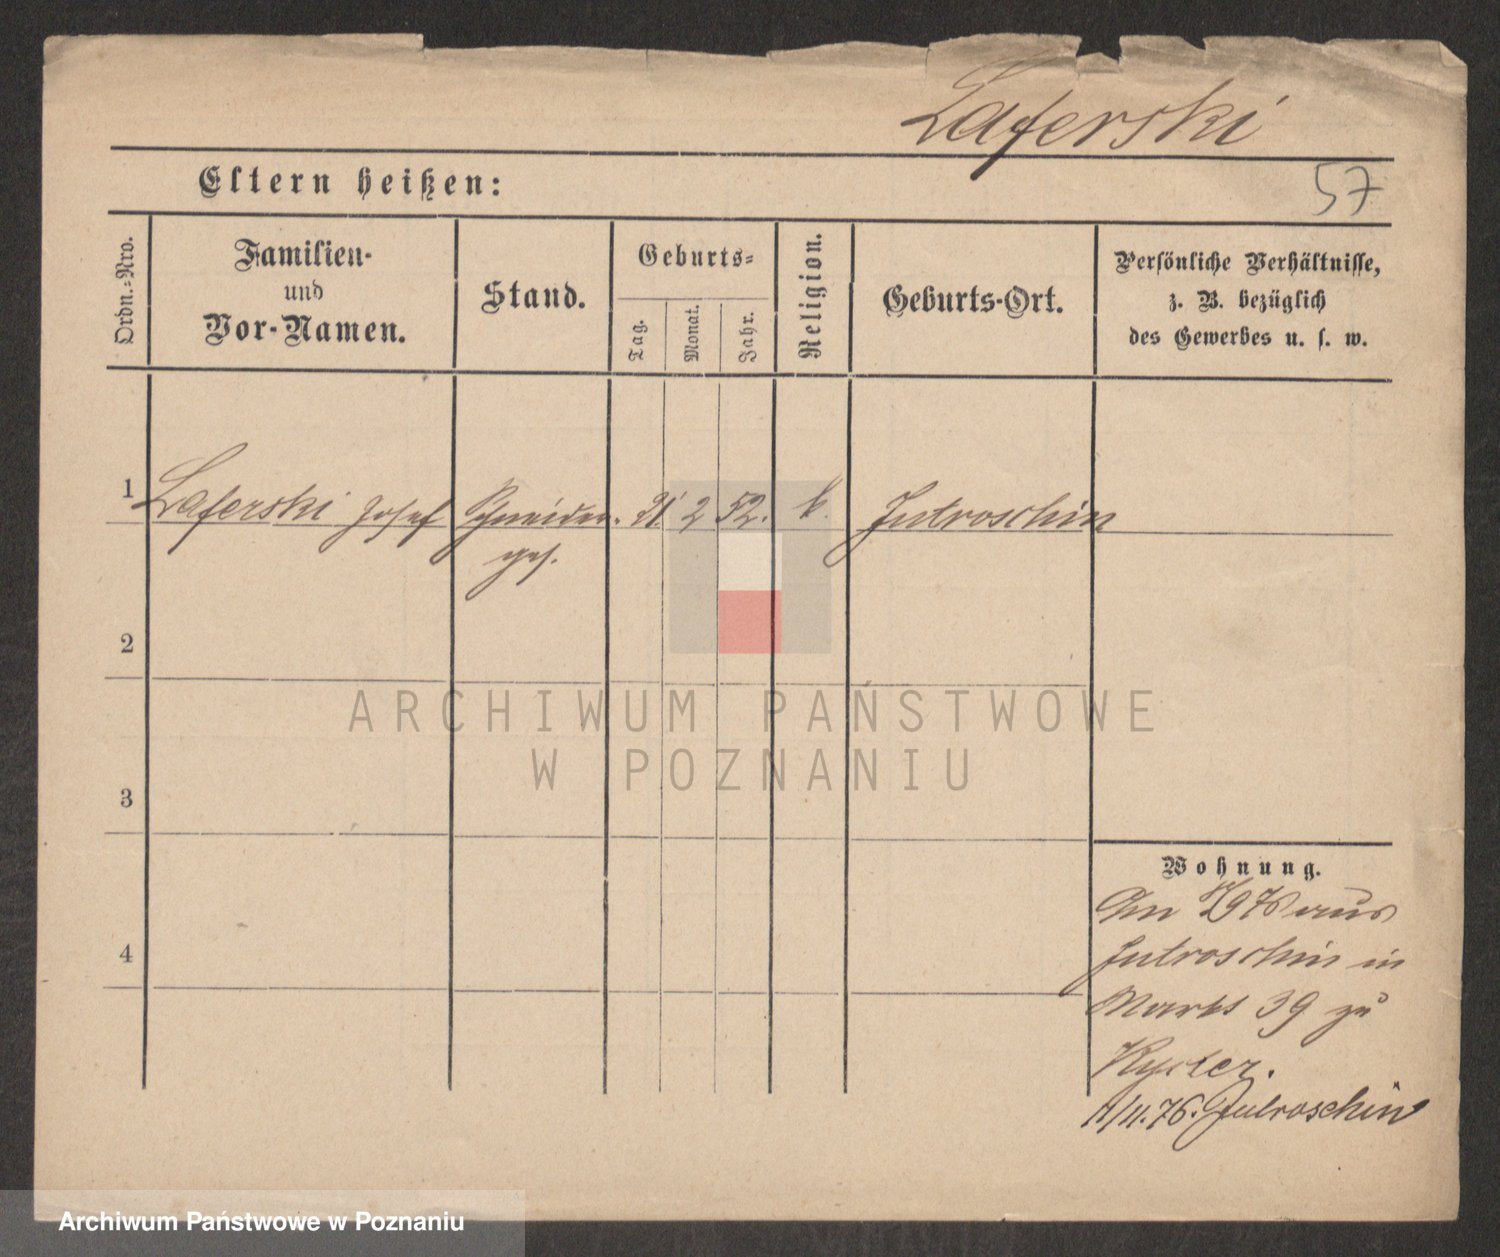 Laferski
Eltern heißen:
57
Ordn.-Nro.
Familien-
und
Vor-Namen.
Stand.
Geburts-
Tag.
Monat.
Jahr.
Religion.
Geburts-Ort.
Persönliche Verhältnisse,
z. B. bezüglich
des Gewerbes u. s. w.
1 Laferski Josef Schneider- 2 52. k. Jutroschin
ges.
2
3
4
ARCHIWUM PAŃSTWOWE
W POZNANIU
Wohnung.
Am 9 76 aus
Jutroschin in
Markt 39 zu
11.76. Jutroschin
Archiwum Państwowe w Poznaniu